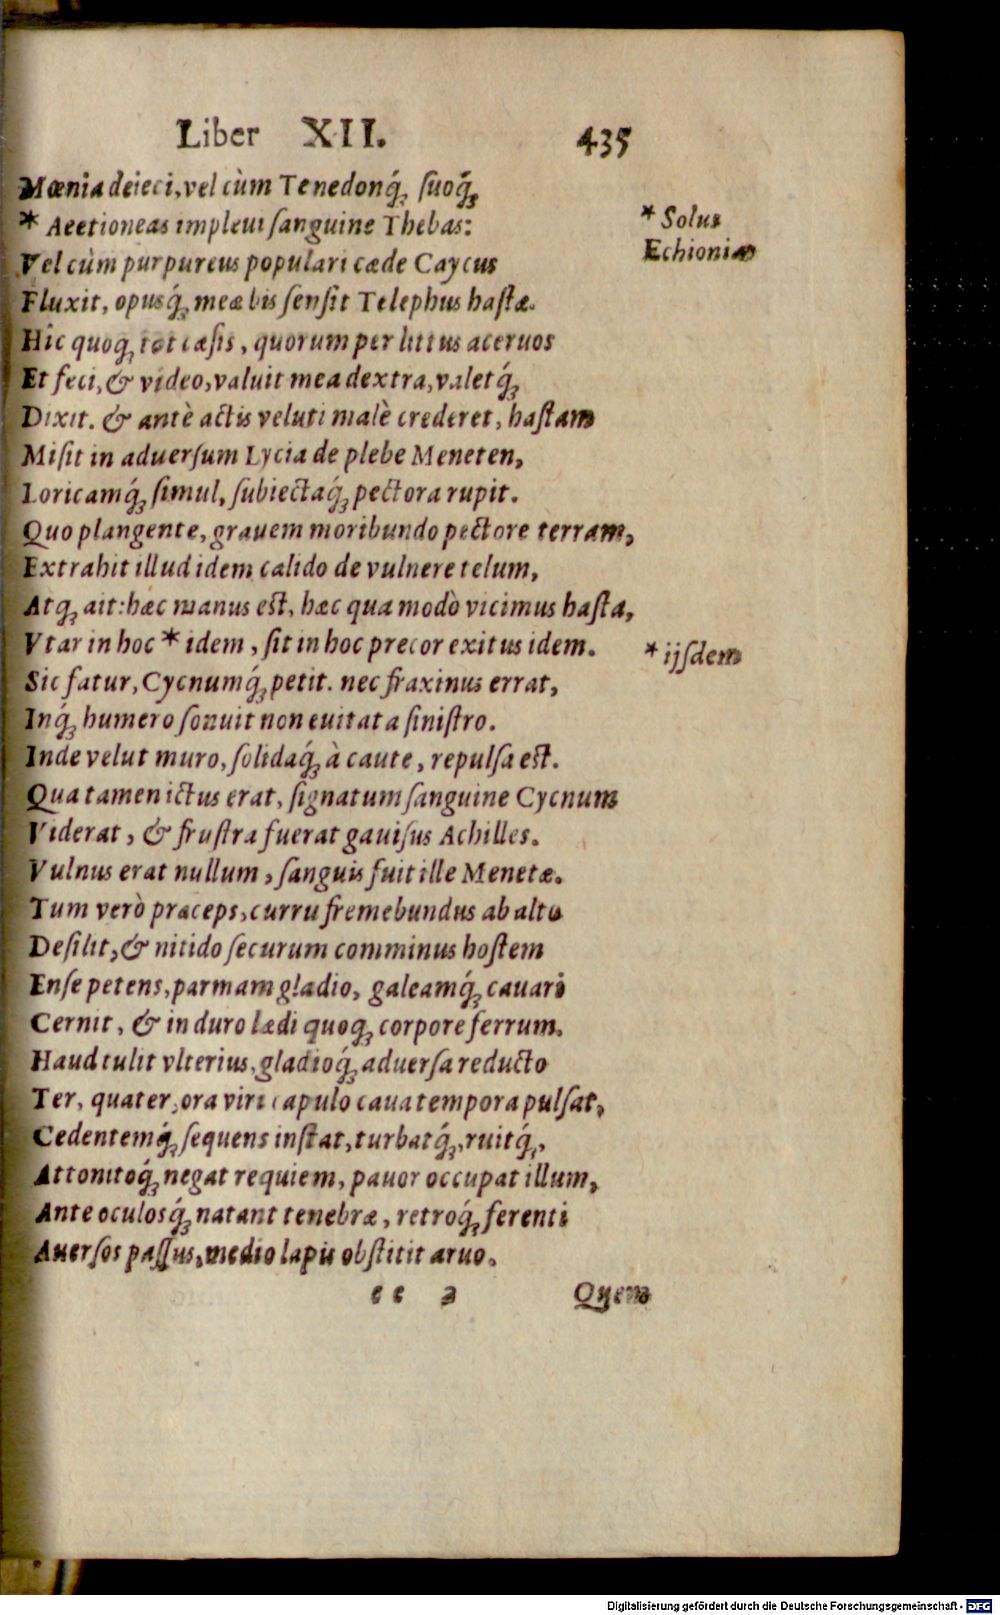 Liber XII. 435
Mœnia deieci, vel cùm Tenedonq́; suoq́;
* Aeetioneas impleui sanguine Thebas:
* Solus
Echionias
Vel cùm purpureus populari cæde Caycus
Fluxit, opusq́; meæ bis sensit Telephus hastæ.
Hic quoq; tot cæsis, quorum per littus aceruos
Et feci, & video, valuit mea dextra, valetq́;
Dixit. & antè actis veluti malè crederet, hastam
Misit in aduersum Lycia de plebe Meneten,
Loricamq́; simul, subiectaq́; pectora rupit.
Quo plangente, grauem moribundo pectore terram,
Extrahit illud idem calido de vulnere telum,
Atq; ait: hæc manus est, hæc qua modò vicimus hasta,
Vtar in hoc * idem, sit in hoc precor exitus idem.
* ijsdem
Sic fatur, Cycnumq́; petit. nec fraxinus errat,
Inq́; humero sonuit non euitata sinistro.
Inde velut muro, solidaq́; à caute, repulsa est.
Qua tamen ictus erat, signatum sanguine Cycnum
Viderat, & frustra fuerat gauisus Achilles.
Vulnus erat nullum, sanguis fuit ille Menetæ.
Tum verò præceps, curru fremebundus ab alto
Desilit, & nitido securum comminus hostem
Ense petens, parmam gladio, galeamq́; cauari
Cernit, & in duro lædi quoq; corpore ferrum.
Haud tulit vlterius, gladioq́; aduersa reducto
Ter, quater, ora viri capulo caua tempora pulsat,
Cedentemq́; sequens instat, turbatq́;, ruitq́;,
Attonitoq́; negat requiem, pauor occupat illum,
Ante oculosq́; natant tenebræ, retroq́; ferenti
Auersos passus, medio lapis obstitit aruo.
ee 2 Quem
Digitalisierung gefördert durch die Deutsche Forschungsgemeinschaft - DFG